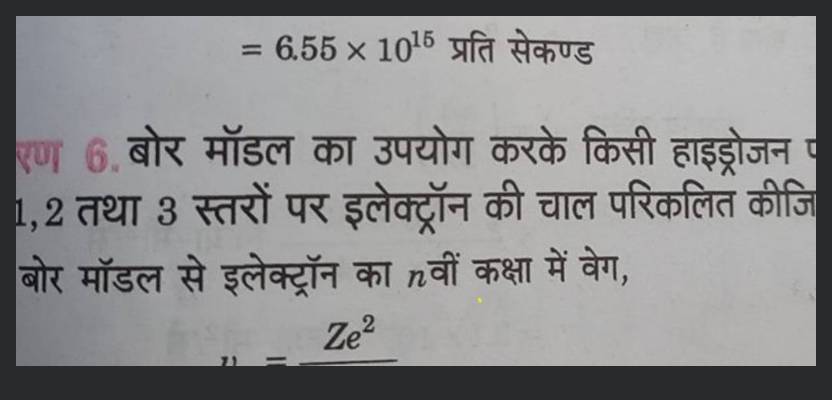 = 6.55 × 10¹⁵ प्रति सेकण्ड
रण 6. बोर मॉडल का उपयोग करके किसी हाइड्रोजन
1, 2 तथा 3 स्तरों पर इलेक्ट्रॉन की चाल परिकलित कीजि
बोर मॉडल से इलेक्ट्रॉन का nवीं कक्षा में वेग,
Ze²
=